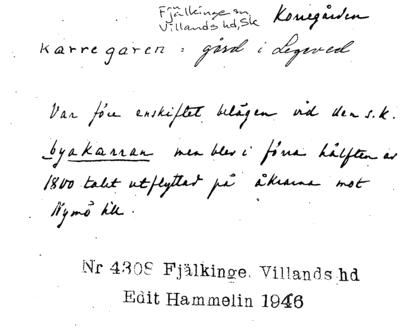 Fjälkinge sn
Villands hd, Sk
Korregården
karregaren : gård i Legeved
Var före enskiftet belägen vid den s.k.
byakarran men blev i förra hälften av
1800 talet utflyttad på åkrarna mot
Nymö till.
Nr 4308 Fjälkinge. Villands hd
Edit Hammelin 1946